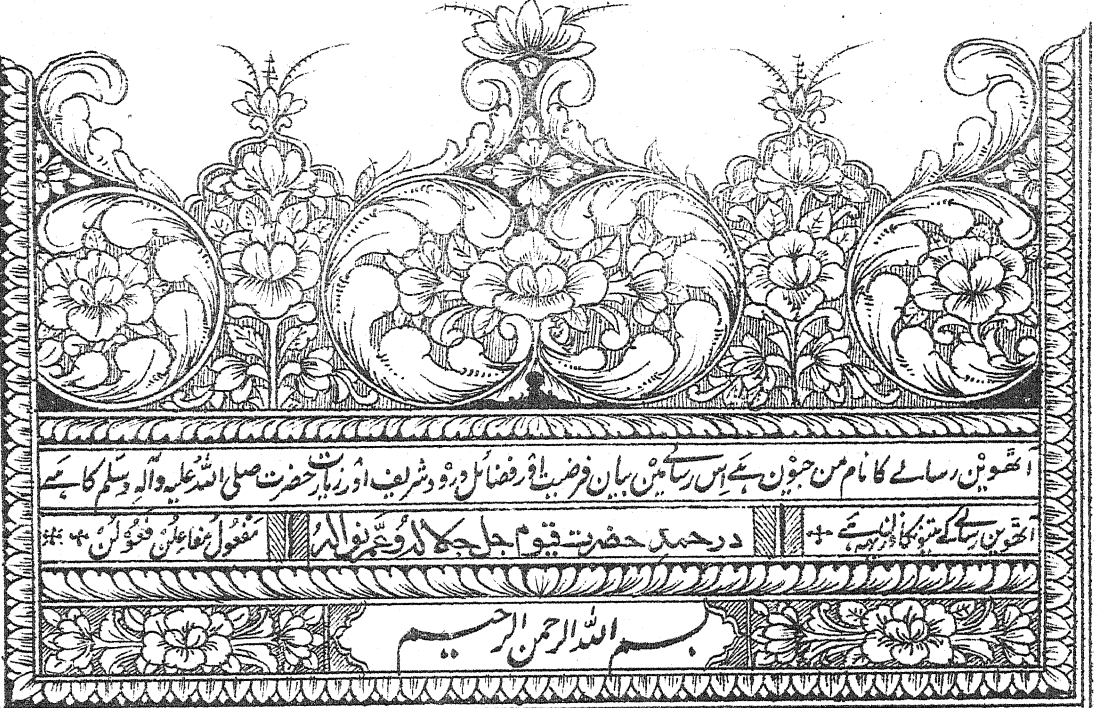 آٹھوین رسالے کا نام من جیون ہے اِس رسالے مین بیان فرضیت اور فضائل درود شریف اور زیارت حضرت صلی اللہ علیہ وآلہ وسلم کا ہے
آٹھوین رسالے کے متنونکا وزن یہہ ہے
در حمد حضرت قیوم جل جلالہ وعم نوالہ
مَفْعُولُ مَفَاعِلُنْ فَعُوْلُنْ
بسم اللہ الرحمن الرحیم